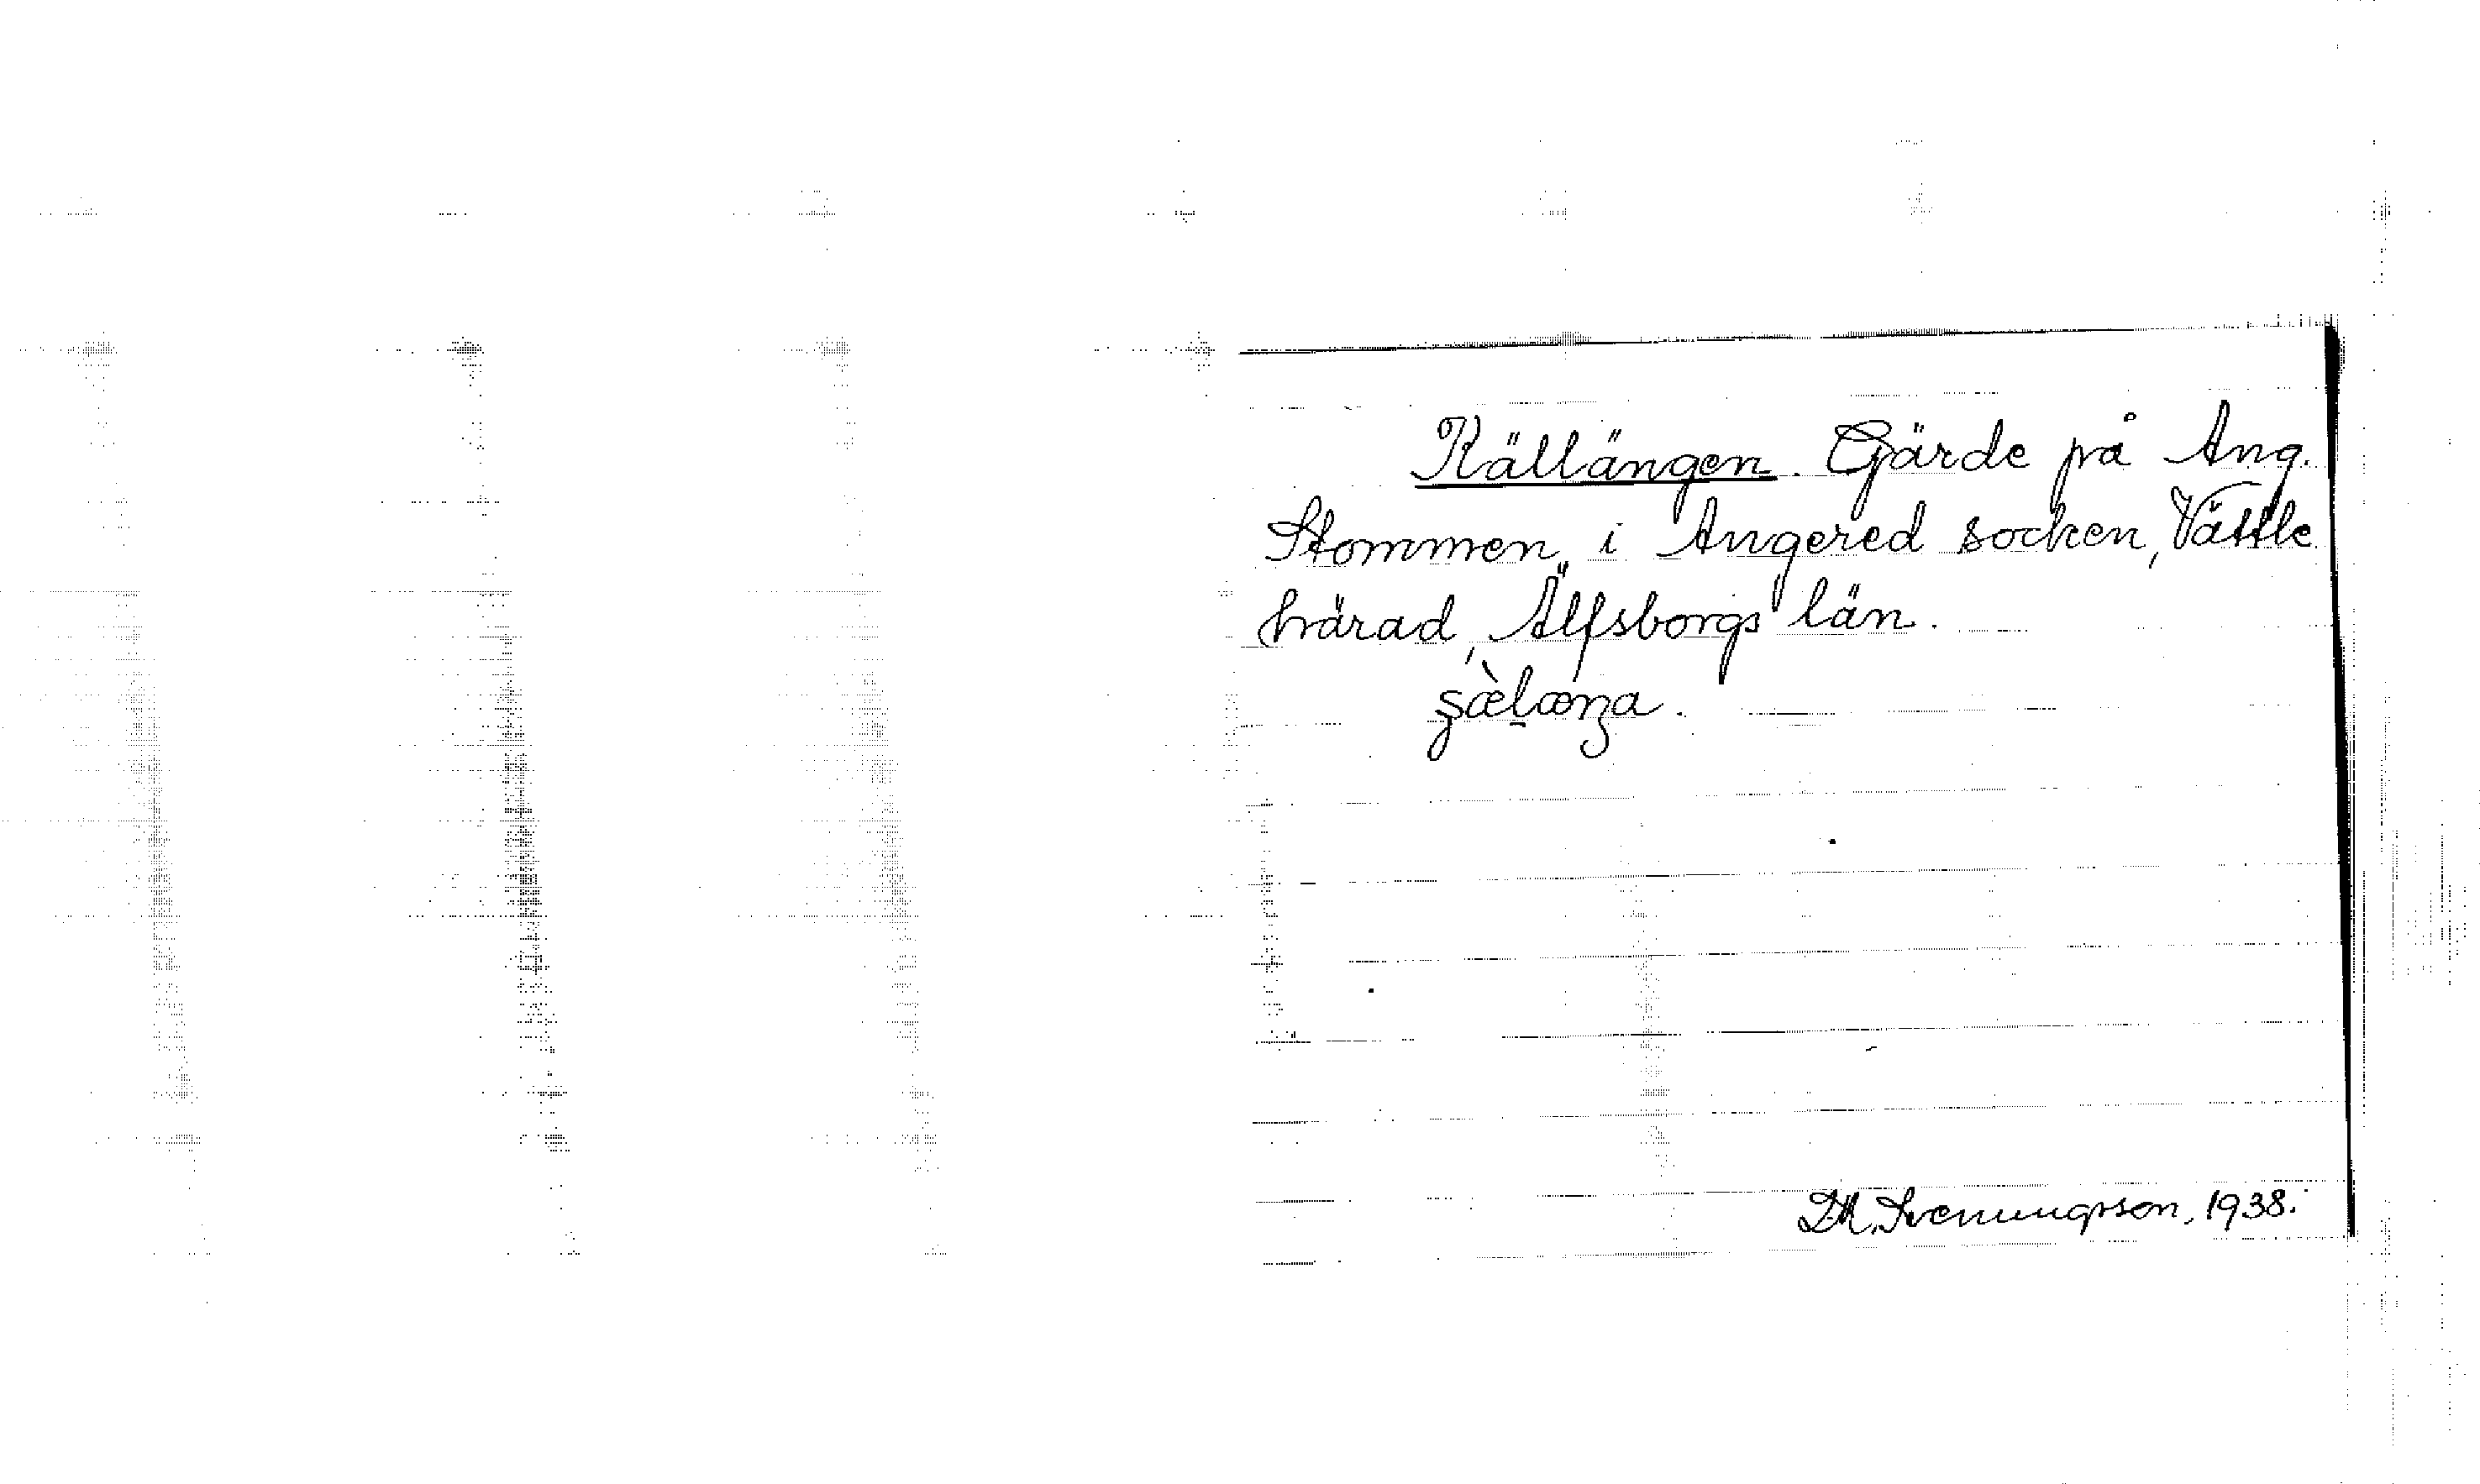 Källängen. Gärde på Ang.
Stommen, i Angered socken, Vättle
härad, Älfsborgs län.
Svenungsson, 1938.